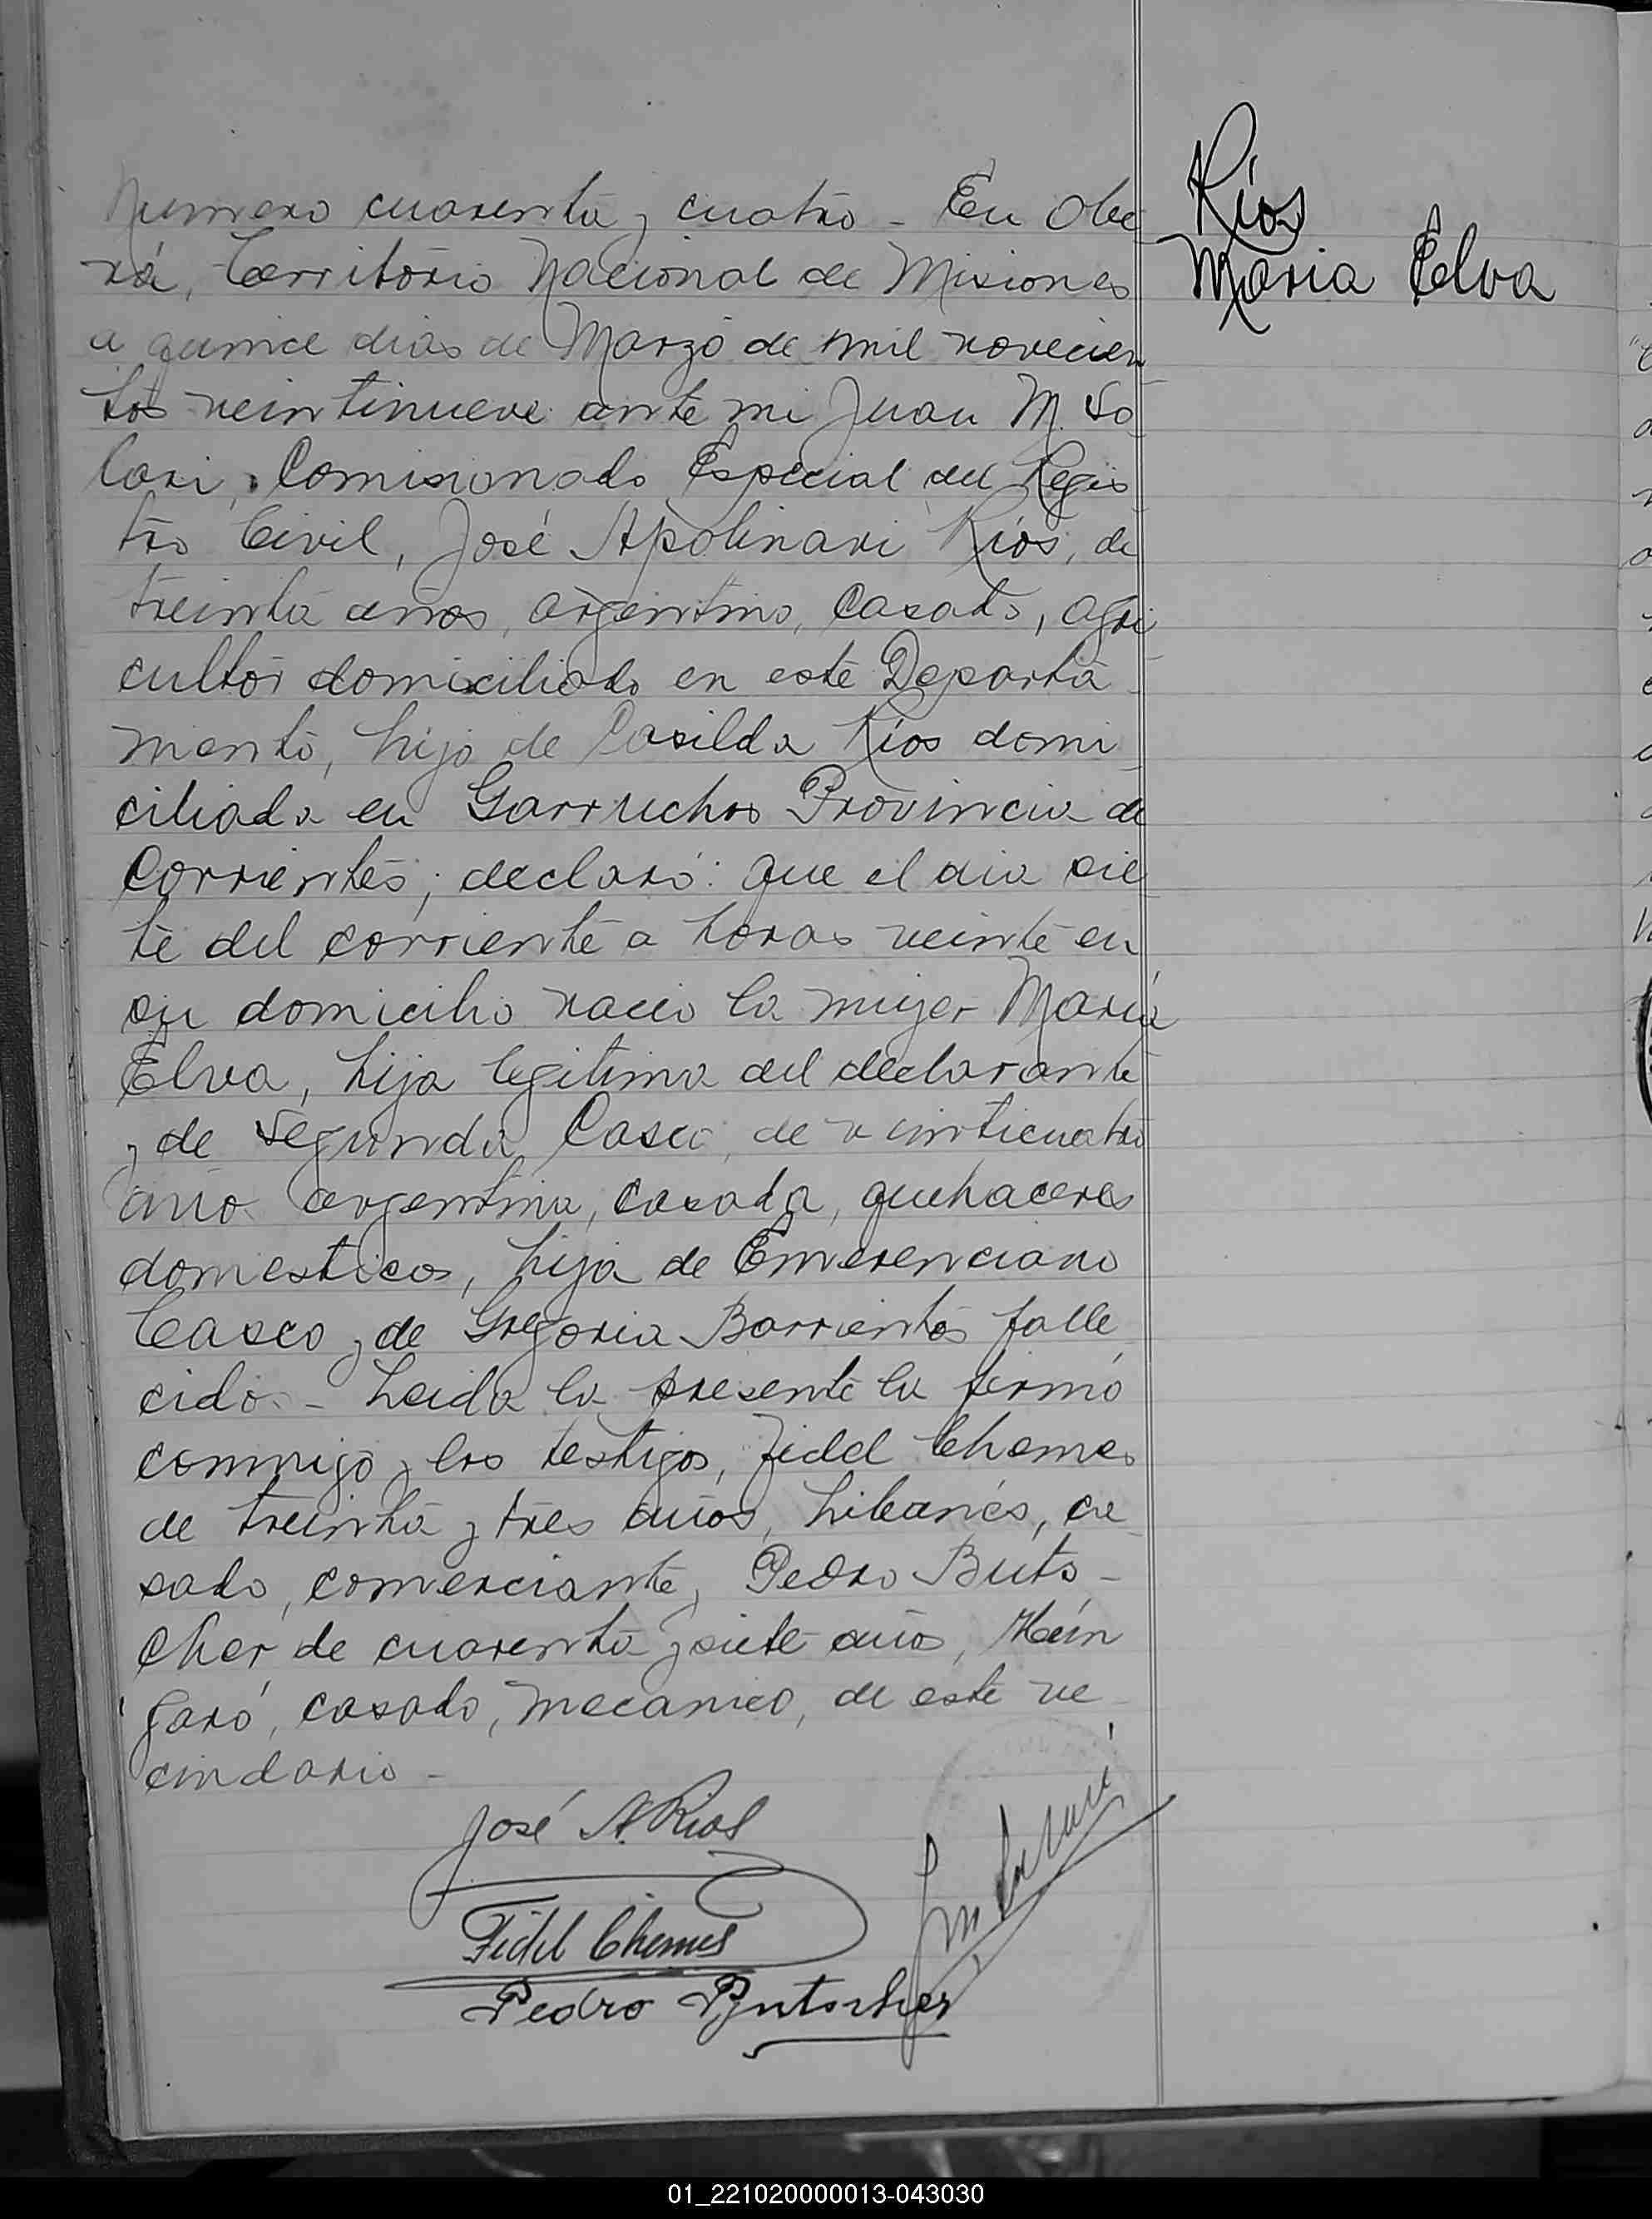 Numero cuarenta y cuatro - En Obe
rá, Territorio Nacional de Misiones
a quince dias de Marzo de mil novecien
tos veintinueve ante mi Juan M. So
lari, Comisionado Especial del Regis
tro Civil, José Apolinari Ríos, de
treinta años, argentino, casado, agri
cultor domiciliado en este Departa
mento, hijo de Casilda Ríos domi
ciliada en Garruchos Provincia de
Corrientes; declaró: que el dia sie
te del corriente a horas veinte en
su domicilio nacio la mujer María
Elva, hija legitima del declarante
y de Segunda Casco, de veinticuatro
años argentina, casada, quehaceres
domesticos, hija de Emerenciano
Casco y de Gregoria Barrientos falle
cidos - Leida la presente la firmó
conmigo y los testigos, Fidel Chemes
de treinta y tres años, Libanés, ca
sado, comerciante y Pedro Buts-
cher de cuarenta y siete años, Hún
garo, casado, mecanico, de este ve
cindario -
Ríos
Maria Elva
José A. Rios
Fidel Chemes
Pedro Butscher
01_221020000013-043030